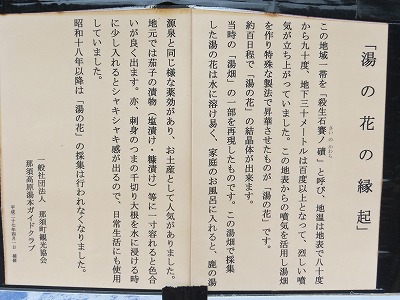 「湯の花の縁起」
この地域一帯を「殺生石賽ノ磧」と呼び、地温は地表で八十度
さいのかわら
から九十度、地下三十メートルは百度以上となって、烈しい噴
気が立ち上がっていました。この地表からの噴気を活用し湯畑
を作り特殊な製法で昇華させたものが「湯の花」です。
約百日程で「湯の花」の結晶体が出来ます。
当時の「湯畑」の一部を再現したものです。この湯畑で採集
した湯の花は水に溶け易く、家庭のお風呂に入れると、鹿の湯
源泉と同じ様な薬効があり、お土産として人気がありました。
地元では茄子の漬物（塩漬け・糠漬け）等に一寸容れると色合
いが良く出ます。亦、刺身のつまの千切り大根を水に浸ける時
に少し入れるとシャキシャキ感が出るので、日常生活にも使用
していました。
昭和十八年以降は「湯の花」の採集は行われなくなりました。
一般社団法人　那須町観光協会
那須高原湯本ガイドクラブ